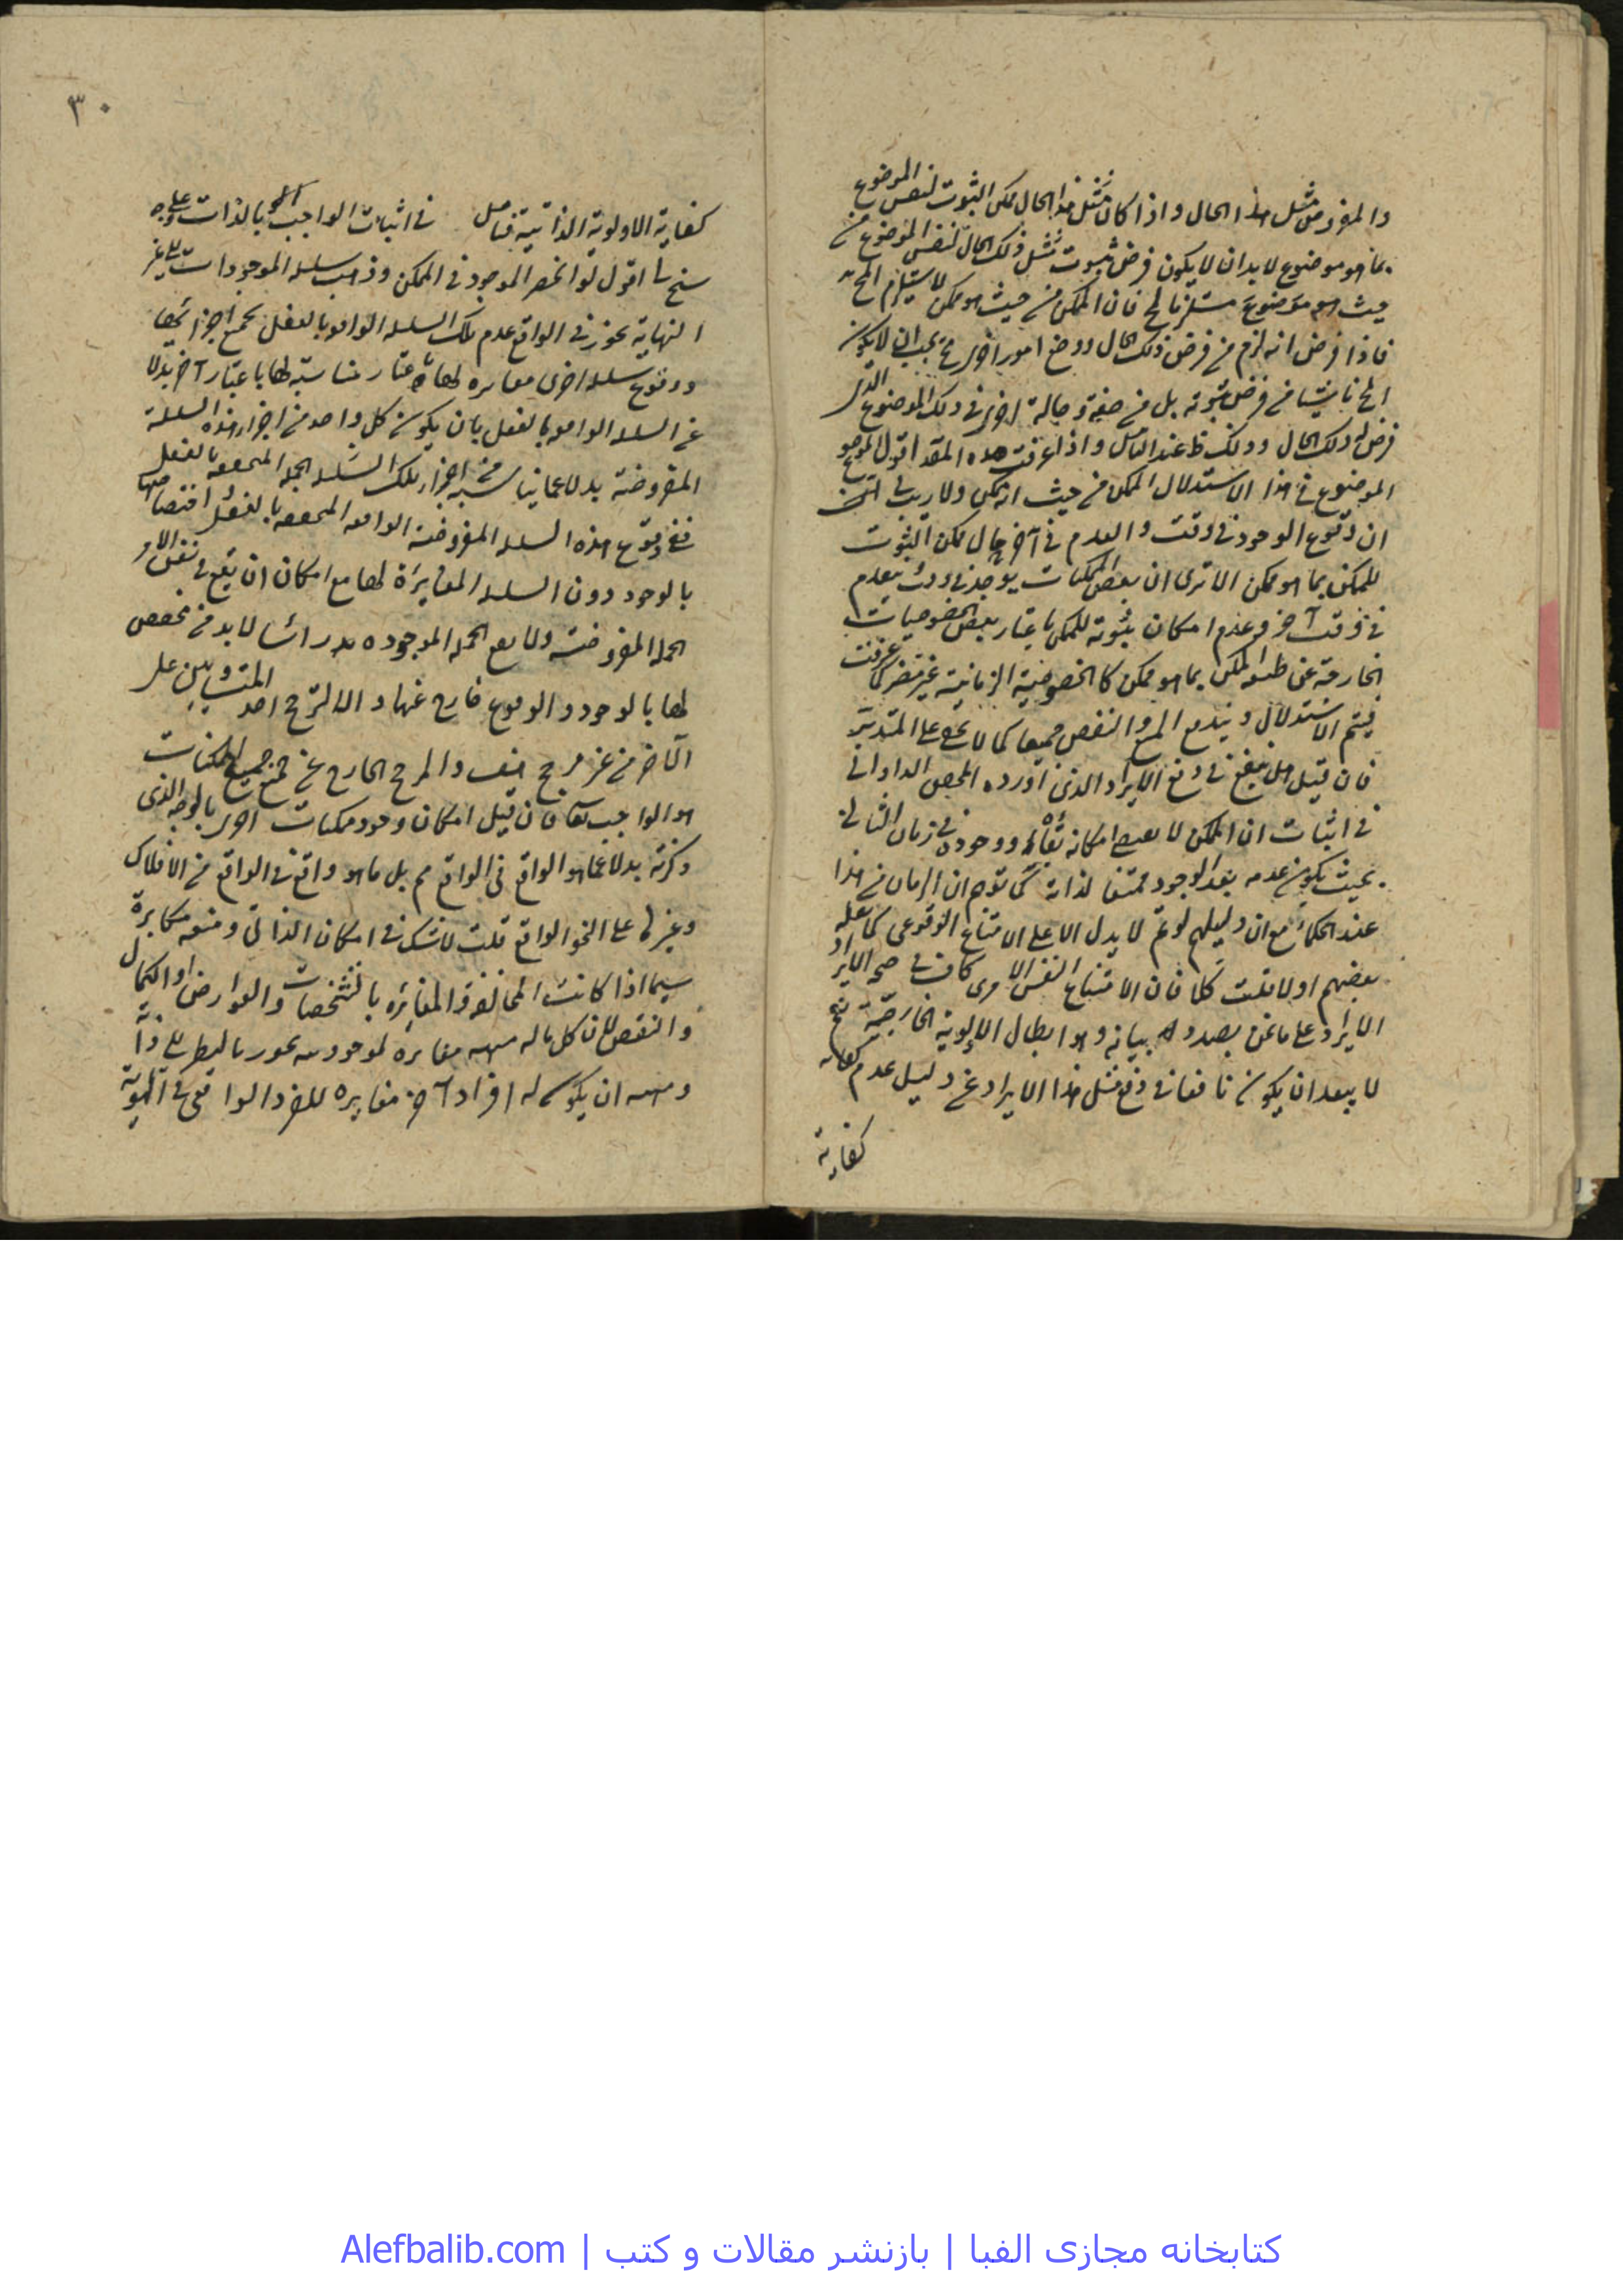 والمفروض مثل هذا الحال واذا كان مثل هذا الحال ممكن الثبوت لنفس الموضوع
بما هو موضوع لا بد ان لا يكون فرض ثبوت مثل ذلك الحال لنفس الموضوع من
حيث هو موضوع مستلزما لمح فان الممكن من حيث هو ممكن لا يستلزم المح
فاذا فرض انه لزم من فرض ذلك الحال ووضع امور اخرى مح يجب ان لا يكون
المح ناشيا من فرض ثبوته بل من صفة وحالة اخرى في ذلك الموضوع الذى
فرض له ذلك الحال وذلك ظ عند التأمل واذا عرفت هذه المقدمة اقول
الموضوع في هذا الاستدلال الممكن من حيث انه ممكن ولا ريب في
ان وقوع الوجود في وقت والعدم في آخر حال ممكن الثبوت
للممكن بما هو ممكن الا ترى ان بعض الممكنات يوجد في وقت يعدم
في وقت آخر وعدم امكان ثبوته للممكن باعتبار بعض الخصوصيات
الخارجة عن طبيعة الممكن بما هو ممكن كالخصوصية الزمانية غير مضر كما عرفت
فيتم الاستدلال ويندفع المنع والنقض جميعا كما لا يخفى على المتدبر
فان قيل هل ينفع في دفع الايراد الذى اورده المحقق الدوانى
في اثبات ان الممكن لا يقتضى امكانه بقائه ووجوده في زمان الثاني
بحيث يكون عدمه بعد الوجود ممتنعا لذاته كما توهم ان الزمان من هذا
عند الحكماء مع ان دليلهم لو تم لا يدل الا على الامتناع الوقوعى كما عليه
بعضهم اولا قلت كلا فان الامتناع النفس الامرى كاف في صحة الايراد
الايراد على ما نحن بصدد بيانه وهو ابطال الاولوية الخارجية نعم
لا يبعد ان يكون نافعا في دفع مثل هذا الايراد عن دليل عدم كفاية
كفاية
٣٠
كفاية الاولوية الذاتية فتأمل في اثبات الواجب الحق بالذات على وجه
سنح لنا اقول لو انحصر الموجود في الممكن وذهب سلسلة الموجودات الى غير
النهاية يجوز في الواقع عدم تلك السلسلة الواقعة بالفعل بجميع اجزائها
ووقوع سلسلة اخرى مغايرة لها باعتبار مناسبة لها باعتبار آخر بدلا
عن السلسلة الواقعة بالفعل بان يكون كل واحد من اجزاء هذه السلسلة
المفروضة بدلا عما يناسبه من اجزاء تلك السلسلة الجملة المتحققة بالفعل
ففي وقوع هذه السلسلة المفروضة الواقعة المتحققة بالفعل اختصاصها
بالوجود دون السلسلة المغايرة لها مع امكان ان يقع في نفس الامر
الجملة المفروضة ولا يقع الجملة الموجودة لا بد من مخصص
لها بالوجود والوقوع خارج عنها والا لترجح احد المتساويين على
الآخر من غير مرجح هف والمرجح الخارج عن جميع الممكنات
هو الواجب تعالى فان قيل امكان وجود ممكنات اخرى بالوجه الذى
ذكرته بدلا عما هو الواقع في الواقع مم بل ما هو واقع في الواقع من الافلاك
وغيرها على النحو الواقع قلت لا شك في امكان الذاتى ومنعه مكابرة
سيما اذا كانت المخالفة والمغايرة بالتشخصات والعوارض او الكمال
والنقص لان كل ما له مهية مغايرة لوجوده يجوز بالنظر الى ذاته
ومهيته ان يكون له افراد آخر مغايرة للفرد الواقعى في الهوية
کتابخانه مجازی الفبا | بازنشر مقالات و کتب | Alefbalib.com